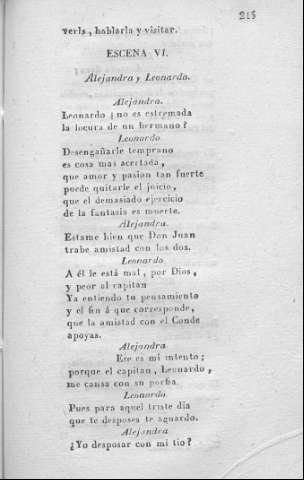 215
verls, hablarla y visitar.
ESCENA VI.
Alejandra y Leonardo.
Alejandra.
Leonardo ¿no es estremada
la locura de un hermano?
Leonardo
Desengañarle temprano
es cosa mas acertada,
que amor y pasion tan fuerte
puede quitarle el juicio,
que el demasiado ejercicio
de la fantasia es muerte.
Alejandra.
Estame bien que Don Juan
trabe amistad con los dos.
Leonardo
A él le está mal, por Dios,
y peor al capitan
Ya entiendo tu pensamiento
y el fin á que corresponde,
que la amistad con el Conde
apoyas.
Alejandra
Ese es mi intento;
porque el capitan, Leonardo,
me cansa con su porfia.
Leonardo
Pues para aquel triste dia
que te desposes te aguardo.
Alejandra
¿Yo desposar con mi tio?